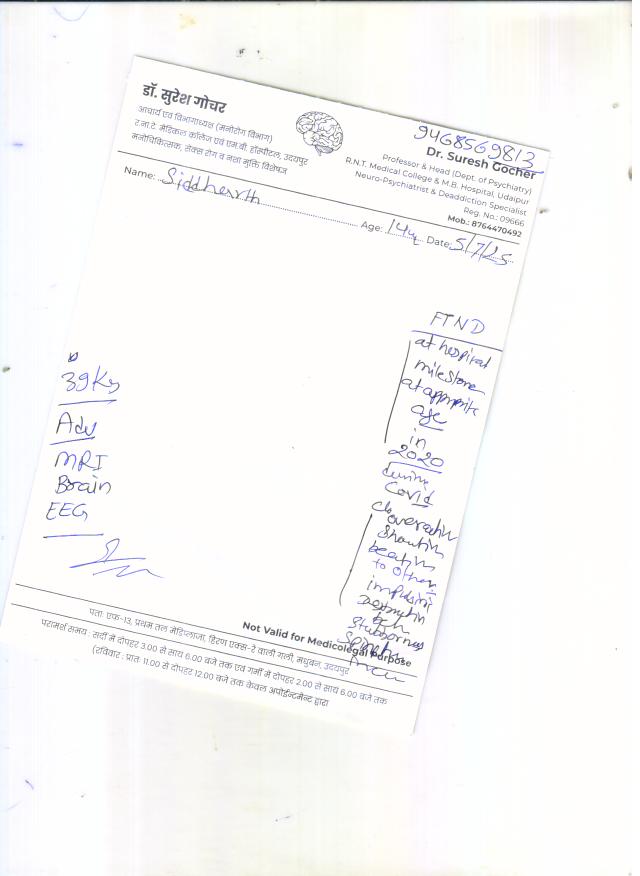 डॉ. सुरेश गोचर
आचार्य एवं विभागाध्यक्ष (मनोरोग विभाग)
र.ना.टे. मेडिकल कॉलेज एवं एम.बी. हॉस्पीटल, उदयपुर
मनोचिकित्सक, सेक्स रोग व नशा मुक्ति विशेषज्ञ
9468569813
Dr. Suresh Gocher
Professor & Head (Dept. of Psychiatry)
R.N.T. Medical College & M.B. Hospital, Udaipur
Neuro-Psychiatrist & Deaddiction Specialist
Reg. No.: 09666
Mob.: 8764470492
Name: Siddhearth
Age: 14y Date: 5/7/25
39Kg
Adv
MRI
Brain
EEG
FTND
at hospital
milestone
at appropriate
age
in
2020
during
Covid
overactin
Shoutin
beatin
to other
impulsive
Stubbornness
Not Valid for Medicolegal Purpose
पता: एफ-13, प्रथम तल मेडिप्लाजा, हिरण एक्स-रे वाली गली, मधुबन, उदयपुर
परामर्श समय : सर्दी में दोपहर 3.00 से सायं 6.00 बजे तक एवं गर्मी में दोपहर 2.00 से सायं 6.00 बजे तक
(रविवार : प्रातः 11.00 से दोपहर 12.00 बजे तक केवल अपॉईन्टमेन्ट द्वारा